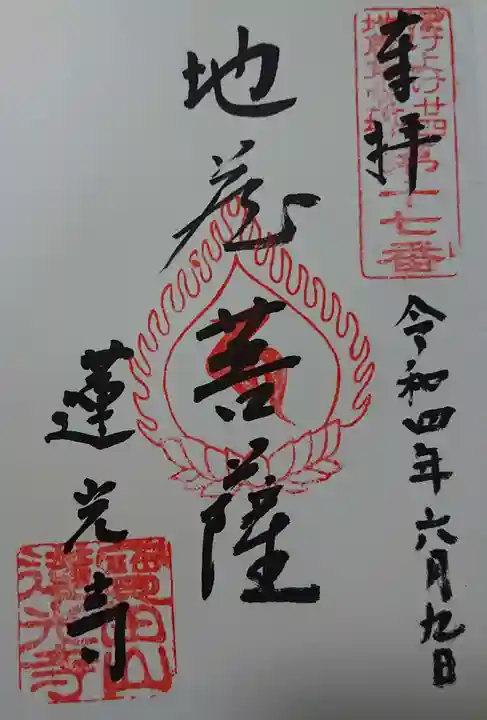 奉拝
十七番
令和四年六月九日
地蔵菩薩
蓮光寺
蓮光寺